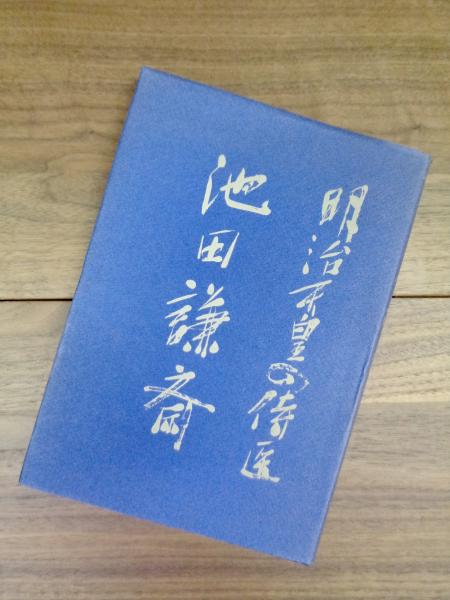 明治天皇の侍医
池田謙斎